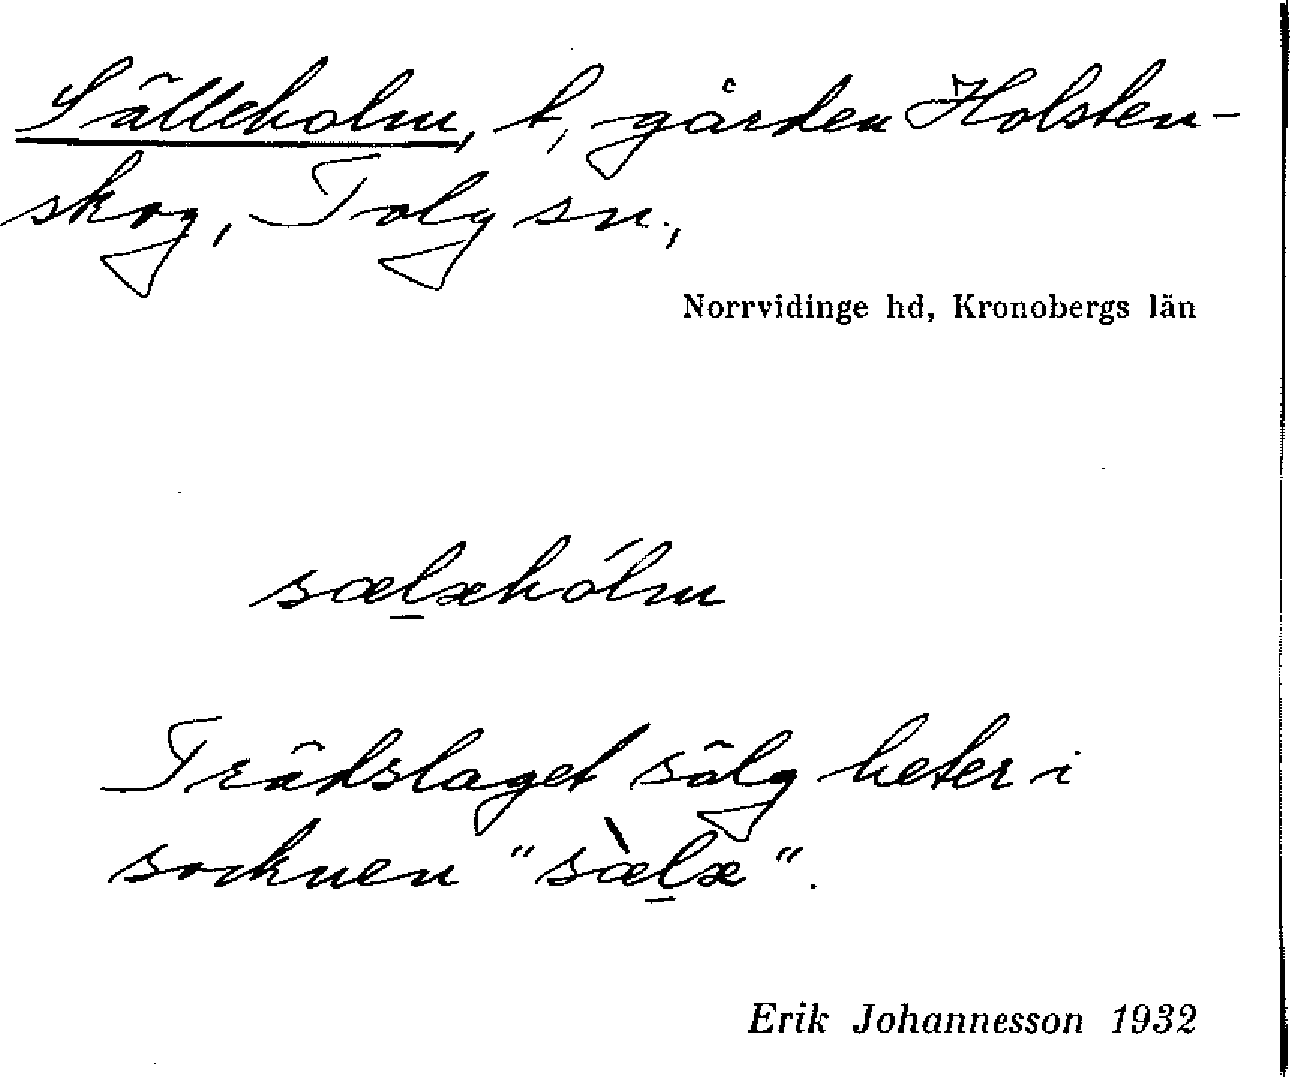 Sälleholm, t, gården Holsten-
skog, Tolg sn.,
Norrvidinge hd, Kronobergs län
sælæhólm
Trädslaget sälg heter i
socknen "sæ̀læ".
Erik Johannesson 1932